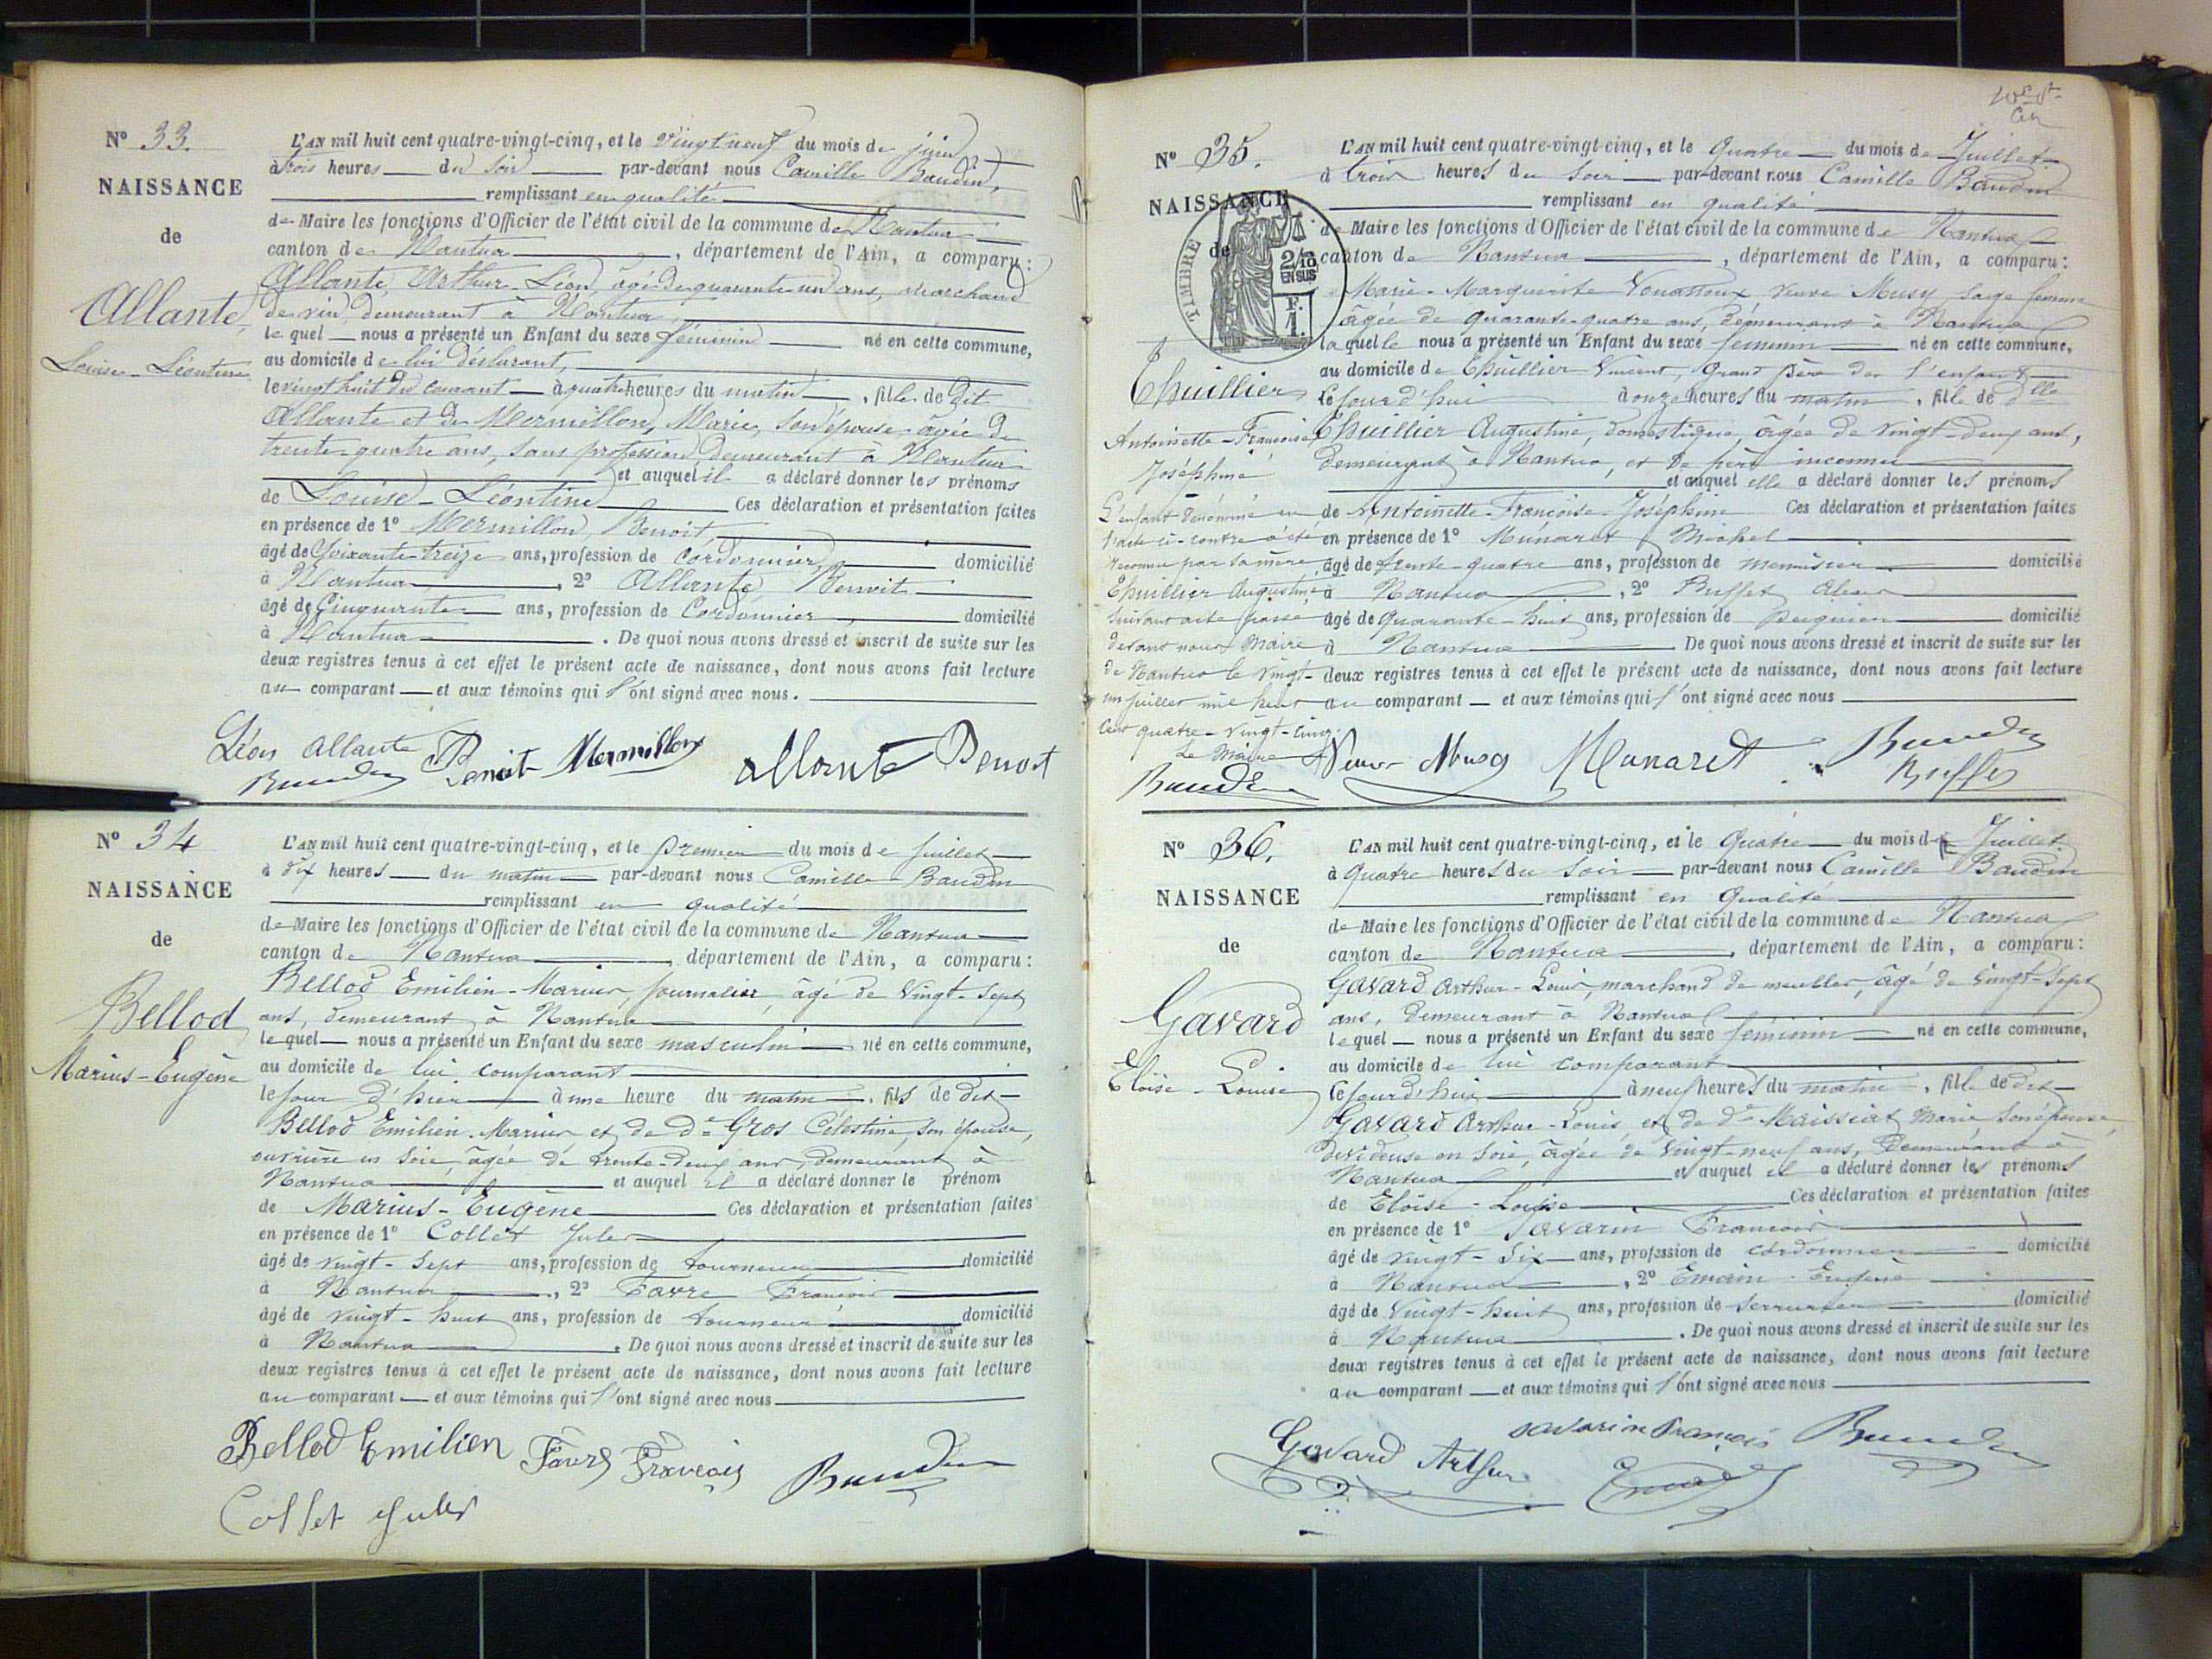 Nº 33.
NAISSANCE
de
Allante,
Louise-Léontine
L'AN mil huit cent quatre-vingt-cinq, et le vingt neuf du mois de juin
à trois heures du soir par-devant nous Camille Baudin,
remplissant en qualité
de Maire les fonctions d'Officier de l'état civil de la commune de Nantua
canton de Nantua, département de l'Ain, a comparu:
Allante, Arthur-Léon, âgé de quarante-un ans, Marchand
de vin, demeurant à Nantua,
le quel nous a présenté un Enfant du sexe féminin né en cette commune,
au domicile de lui déclarant,
le vingt huit du courant à quatre heures du matin, fille de dit
Allante et de Mermillon, Marie, son épouse, âgée de
trente-quatre ans, sans profession, demeurant à Nantua
et auquel il a déclaré donner les prénoms
de Louise-Léontine Ces déclaration et présentation faites
en présence de 1º Mermillon, Benoît,
âgé de Soixante-treize ans, profession de cordonnier, domicilié
à Nantua, 2º Allante, Benoit
âgé de Cinquante ans, profession de Cordonnier, domicilié
à Nantua. De quoi nous avons dressé et inscrit de suite sur les
deux registres tenus à cet effet le présent acte de naissance, dont nous avons fait lecture
au comparant et aux témoins qui l'ont signé avec nous.
Léon Allante Benoit Mermillon Allante Benoit
Baudin
Nº 34
NAISSANCE
de
Bellod
Marius-Eugène
L'AN mil huit cent quatre-vingt-cinq, et le premier du mois de juillet
à dix heures du matin par-devant nous Camille Baudin
remplissant en qualité
de Maire les fonctions d'Officier de l'état civil de la commune de Nantua
canton de Nantua, département de l'Ain, a comparu:
Bellod Emilien-Marius, journalier, âgé de vingt-sept
ans, demeurant à Nantua
le quel nous a présenté un Enfant du sexe masculin né en cette commune,
au domicile de lui comparant
le jour d'hier à une heure du matin, fils de dit
Bellod Emilien-Marius et de de Gros Célestine, son épouse,
ouvrière en soie, âgée de trente-deux ans, demeurant à
Nantua et auquel il a déclaré donner le prénom
de Marius-Eugène Ces déclaration et présentation faites
en présence de 1º Collet Jules
âgé de vingt-sept ans, profession de tourneur domicilié
à Nantua, 2º Favre François
âgé de vingt-huit ans, profession de tourneur domicilié
à Nantua. De quoi nous avons dressé et inscrit de suite sur les
deux registres tenus à cet effet le présent acte de naissance, dont nous avons fait lecture
au comparant et aux témoins qui l'ont signé avec nous
Bellod Emilien Favre François Baudin
Collet Jules
Nº 35.
NAISSANCE
de
TIMBRE
2/10
EN SUS
F.
1.
Thuillier
Antoinette-Françoise
Joséphine
L'enfant dénommé en
l'acte ci-contre a été
reconnu par sa mère
Thuillier Augustine
suivant acte passé
devant nous Maire
de Nantua le vingt-
un juillet mil huit
cent quatre-vingt-cinq.
Le Maire
Baudin
L'AN mil huit cent quatre-vingt-cinq, et le Quatre du mois de Juillet
à trois heures du soir par-devant nous Camille Baudin
remplissant en qualité
de Maire les fonctions d'Officier de l'état civil de la commune de Nantua
canton de Nantua, département de l'Ain, a comparu:
Marie-Marguerite Vouassoux veuve Musy, sage femme
âgée de quarante-quatre ans, demeurant à Nantua
la quelle nous a présenté un Enfant du sexe féminin né en cette commune,
au domicile de Thuillier Vincent, grand père de l'enfant
le jour d'hui à onze heures du matin, fille de dlle
Thuillier Augustine, domestique, âgée de vingt-deux ans,
demeurant à Nantua, et de père inconnu
et auquel elle a déclaré donner les prénoms
de Antoinette-Françoise-Joséphine Ces déclaration et présentation faites
en présence de 1º Munaret Michel
âgé de trente-quatre ans, profession de menuisier domicilié
à Nantua, 2º Buffet
âgé de quarante-huit ans, profession de peignier domicilié
à Nantua De quoi nous avons dressé et inscrit de suite sur les
deux registres tenus à cet effet le présent acte de naissance, dont nous avons fait lecture
au comparant et aux témoins qui l'ont signé avec nous
Veuve Musy Munaret Baudin
Buffet
Nº 36.
NAISSANCE
de
Gavard
Eloïse-Louise
L'AN mil huit cent quatre-vingt-cinq, et le Quatre du mois de Juillet
à Quatre heures du soir par-devant nous Camille Baudin
remplissant en qualité
de Maire les fonctions d'Officier de l'état civil de la commune de Nantua
canton de Nantua, département de l'Ain, a comparu:
Gavard Arthur-Louis, marchand de meubles, âgé de vingt-sept
ans, demeurant à Nantua
le quel nous a présenté un Enfant du sexe féminin né en cette commune,
au domicile de lui comparant
le jour d'hui à neuf heures du matin, fille de dit
Gavard Arthur-Louis et de de Maissiat Marie, son épouse,
dévideuse en soie, âgée de vingt-neuf ans, demeurant à
Nantua et auquel il a déclaré donner les prénoms
de Eloïse-Louise Ces déclaration et présentation faites
en présence de 1º Savarin François
âgé de vingt-six ans, profession de cordonnier domicilié
à Nantua, 2º Emain Eugène
âgé de vingt-huit ans, profession de serrurier domicilié
à Nantua. De quoi nous avons dressé et inscrit de suite sur les
deux registres tenus à cet effet le présent acte de naissance, dont nous avons fait lecture
au comparant et aux témoins qui l'ont signé avec nous
Gavard Arthur savarin François Baudin